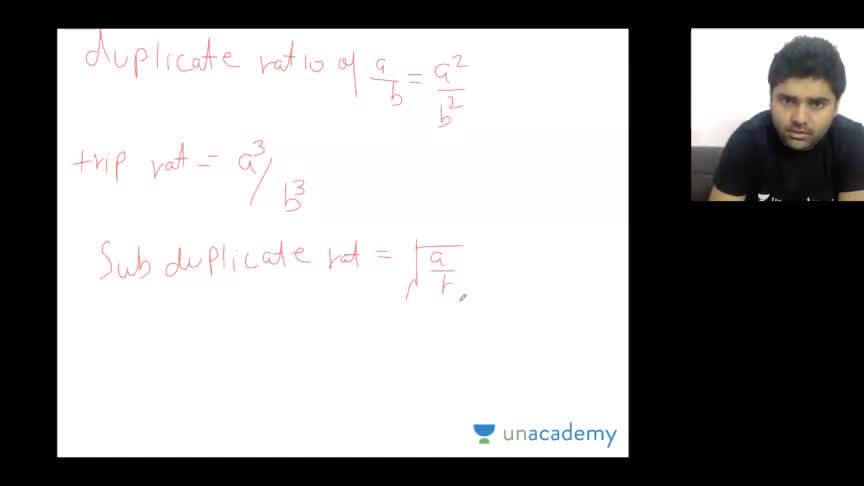 duplicate ratio of a/b = a²/b²
trip rat = a³/b³
Sub duplicate rat = √a/
unacademy